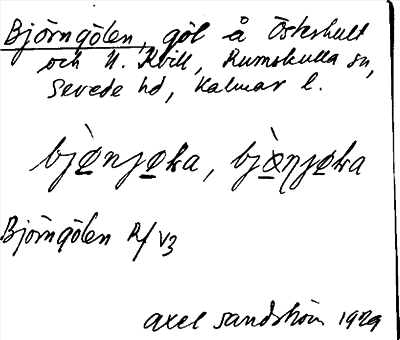 Björngölen, göl å Österhult
och N. Kvill, Rumskulla sn,
Sevede hd, Kalmar l.
Björngölen R/V3
Axel Sandström 1929